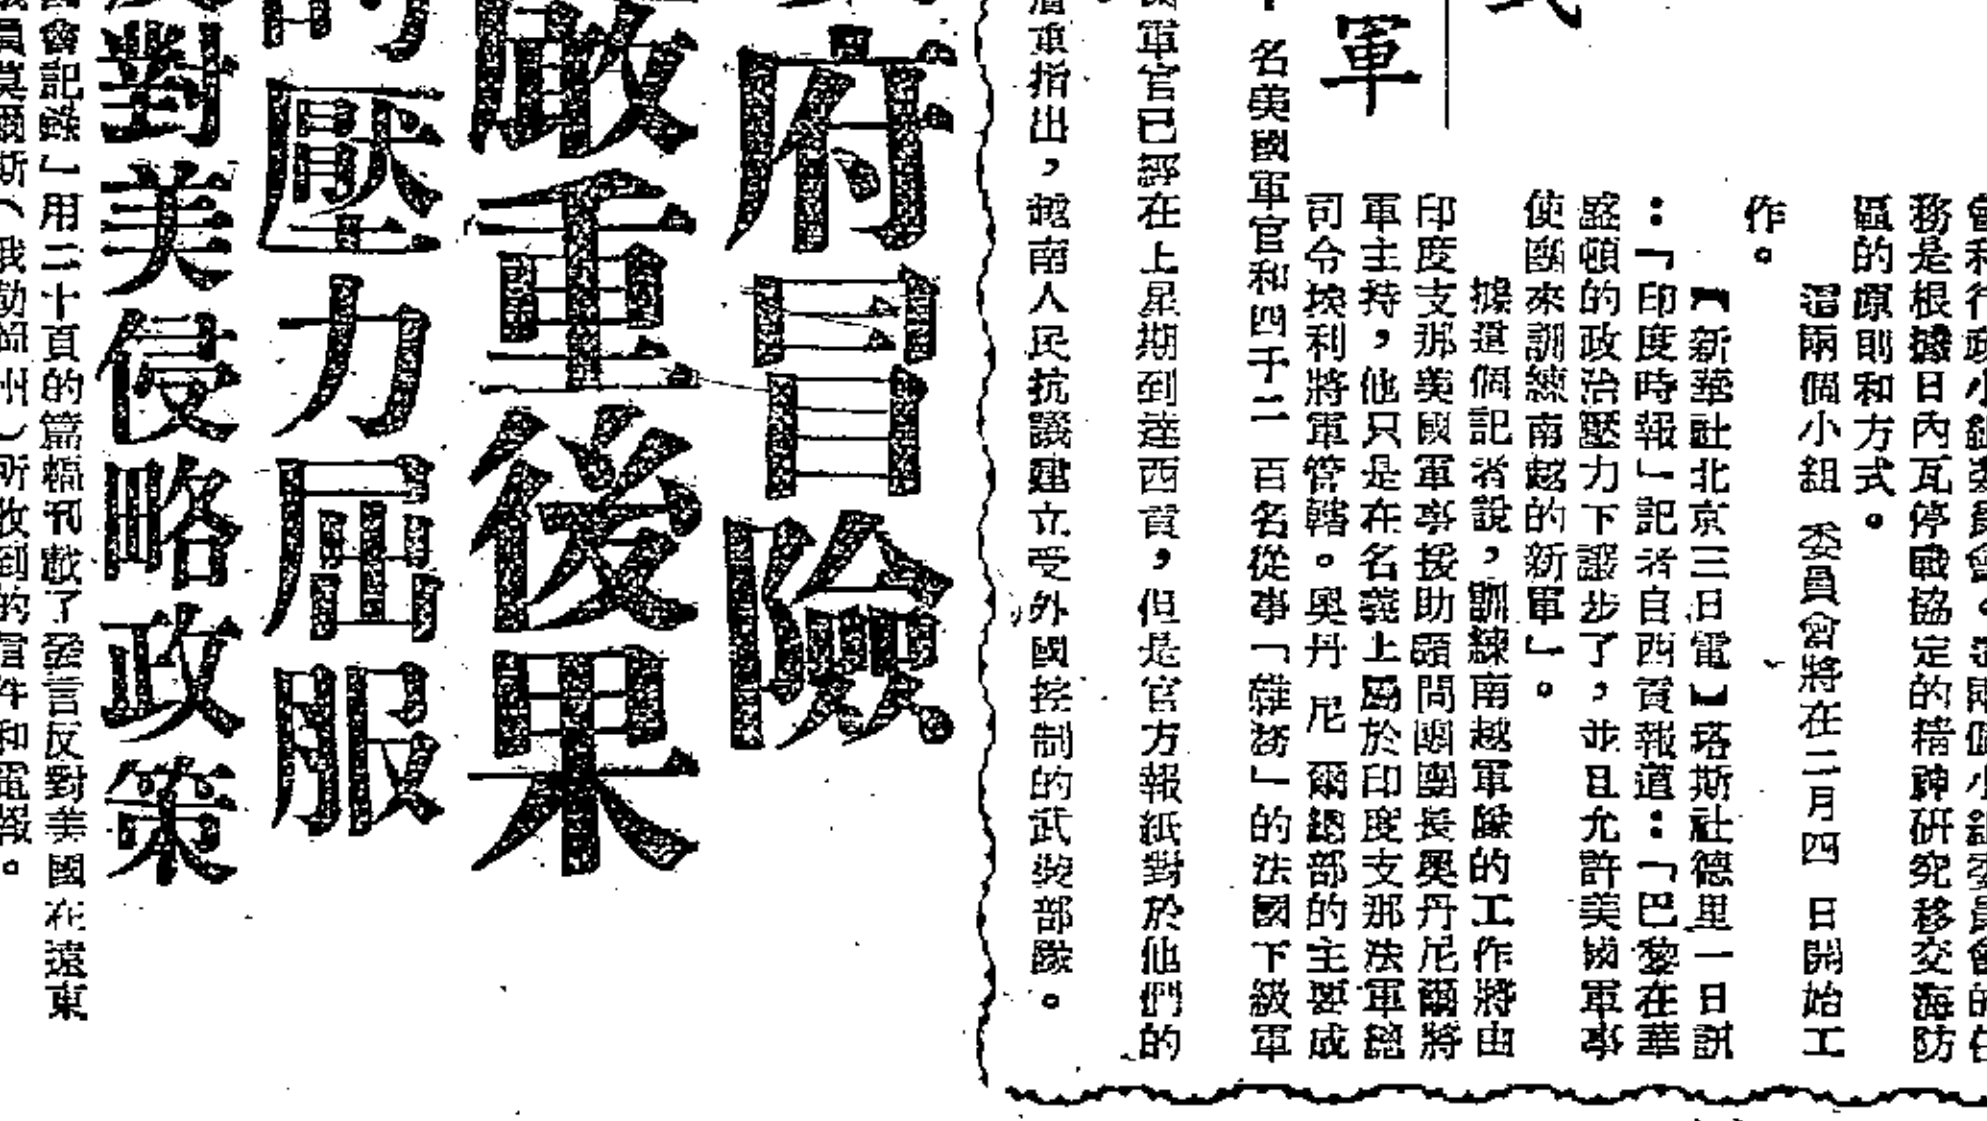 式
軍
務是根據日內瓦停戰協定的精神研究移交海防
區的原則和方式。
這兩個小組委員會將在二月四日開始工
作。
【新華社北京三日電】塔斯社德里一日訊
：「印度時報」記者自西貢報道：「巴黎在華
盛頓的政治壓力下讓步了，並且允許美國軍事
使團來訓練南越的新軍」。
據這個記者說，訓練南越軍隊的工作將由
印度支那美國軍事援助顧問團團長奧丹尼爾將
軍主持，他只是在名義上屬於印度支那法軍總
司令埃利將軍管轄。奧丹尼爾總部的主要成
名美國軍官和四千二百名從事「雜務」的法國下級軍
軍官已經在上星期到達西貢，但是官方報紙對於他們的
重指出，越南人民抗議建立受外國控制的武裝部隊。
府冒險
嚴重後果
的壓力屈服
對美侵略政策
會記錄」用二十頁的篇幅刊載了發言反對美國在遠東
員莫爾斯（俄勒岡州）所收到的信件和電報。